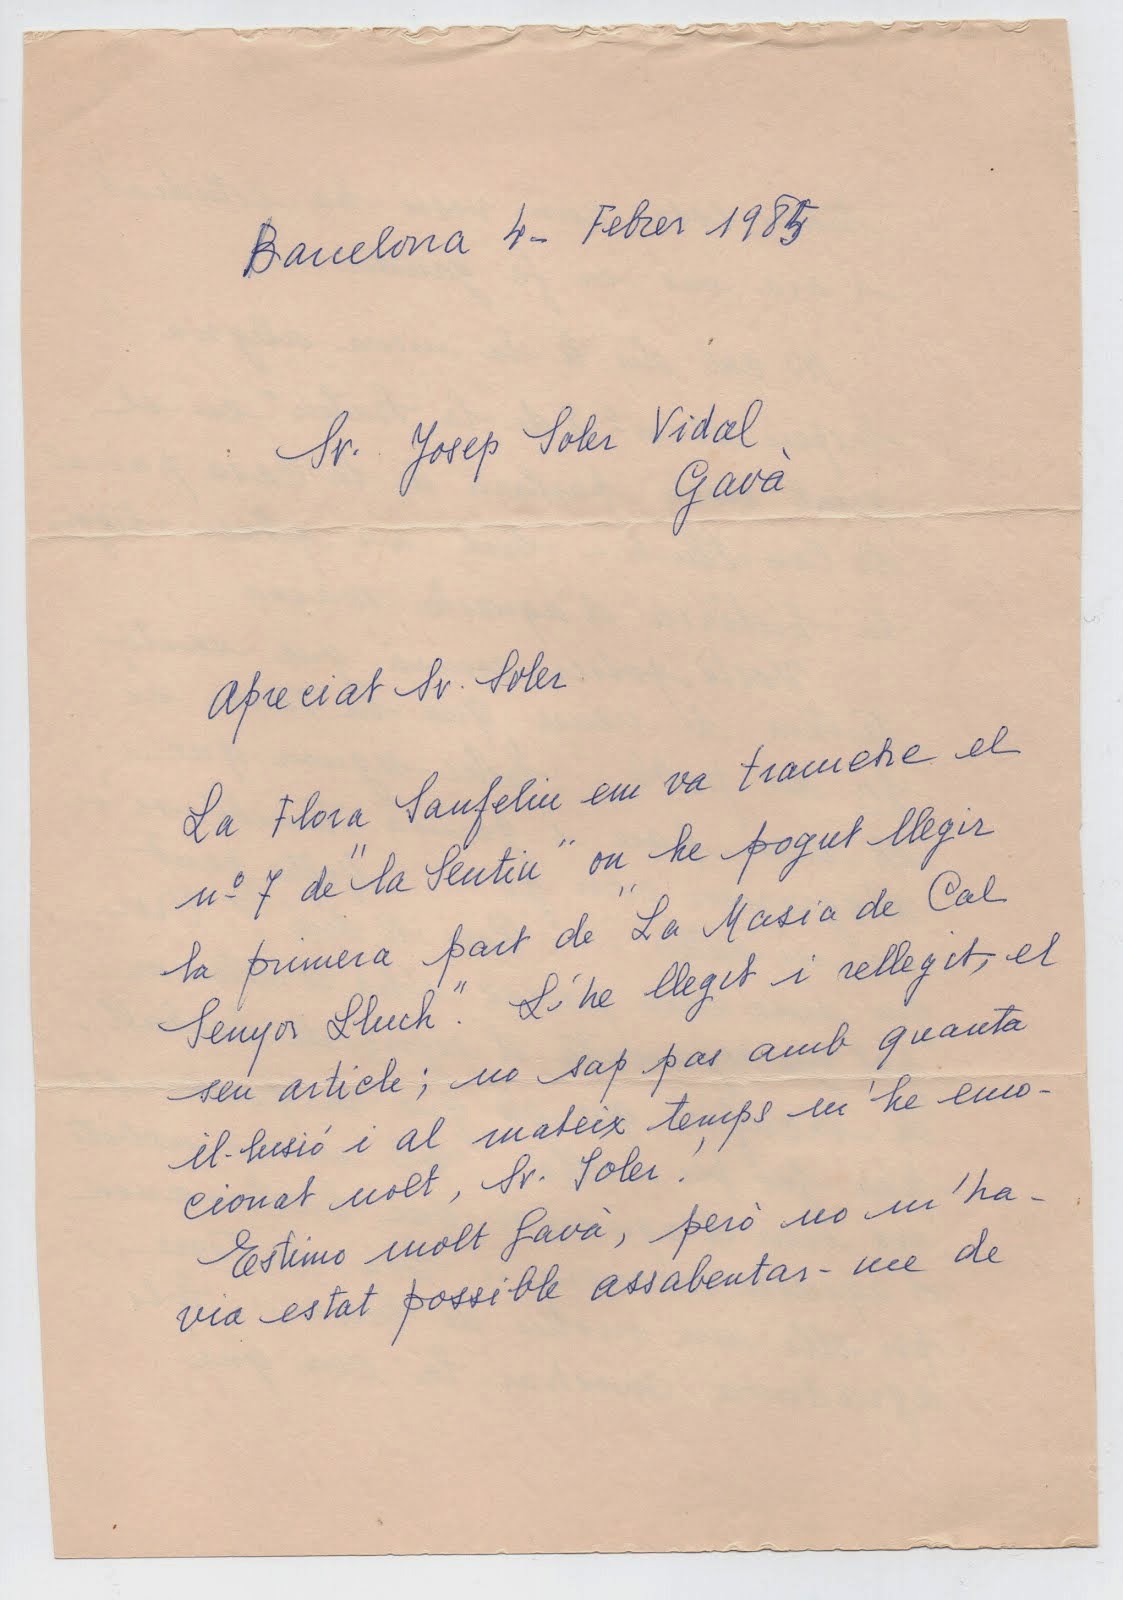 Barcelona 4- Febrer 1985
Sr. Josep Soler Vidal
Gavà
Apreciat Sr. Soler
La Flora Sanfeliu em va trametre el
nº 7 de "la Sentiu" on he pogut llegir
la primera part de "La Masia de Cal
Senyor Lluch". L'he llegit i rellegit, el
seu article; no sap pas amb quanta
il-lusió i al mateix temps m'he emo-
cionat molt, Sr. Soler!
Estimo molt Gavà, però no m'ha-
via estat possible assabentar-me de